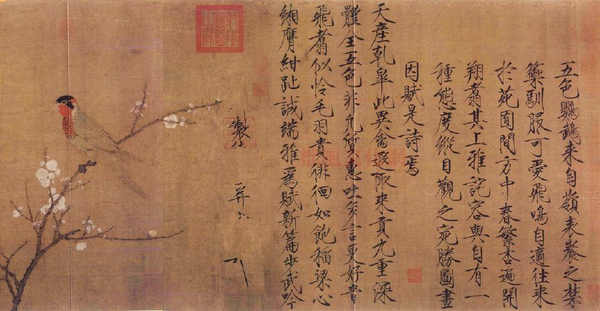 五色鸚鵡來自嶺表養之禁
籞馴服可愛飛鳴自適往來
於苑囿間方中春繁杏遍開
翔翥其上雅詫容與自有一
種態度縱目觀之宛勝圖畫
因賦是詩焉
天產乾皋此異禽遐陬來貢九重深
體全五色非凡質惠吐多言更好音
飛翥似憐毛羽貴徘徊如飽稻粱心
緗膺紺趾誠端雅爲賦新篇步武吟
製
并